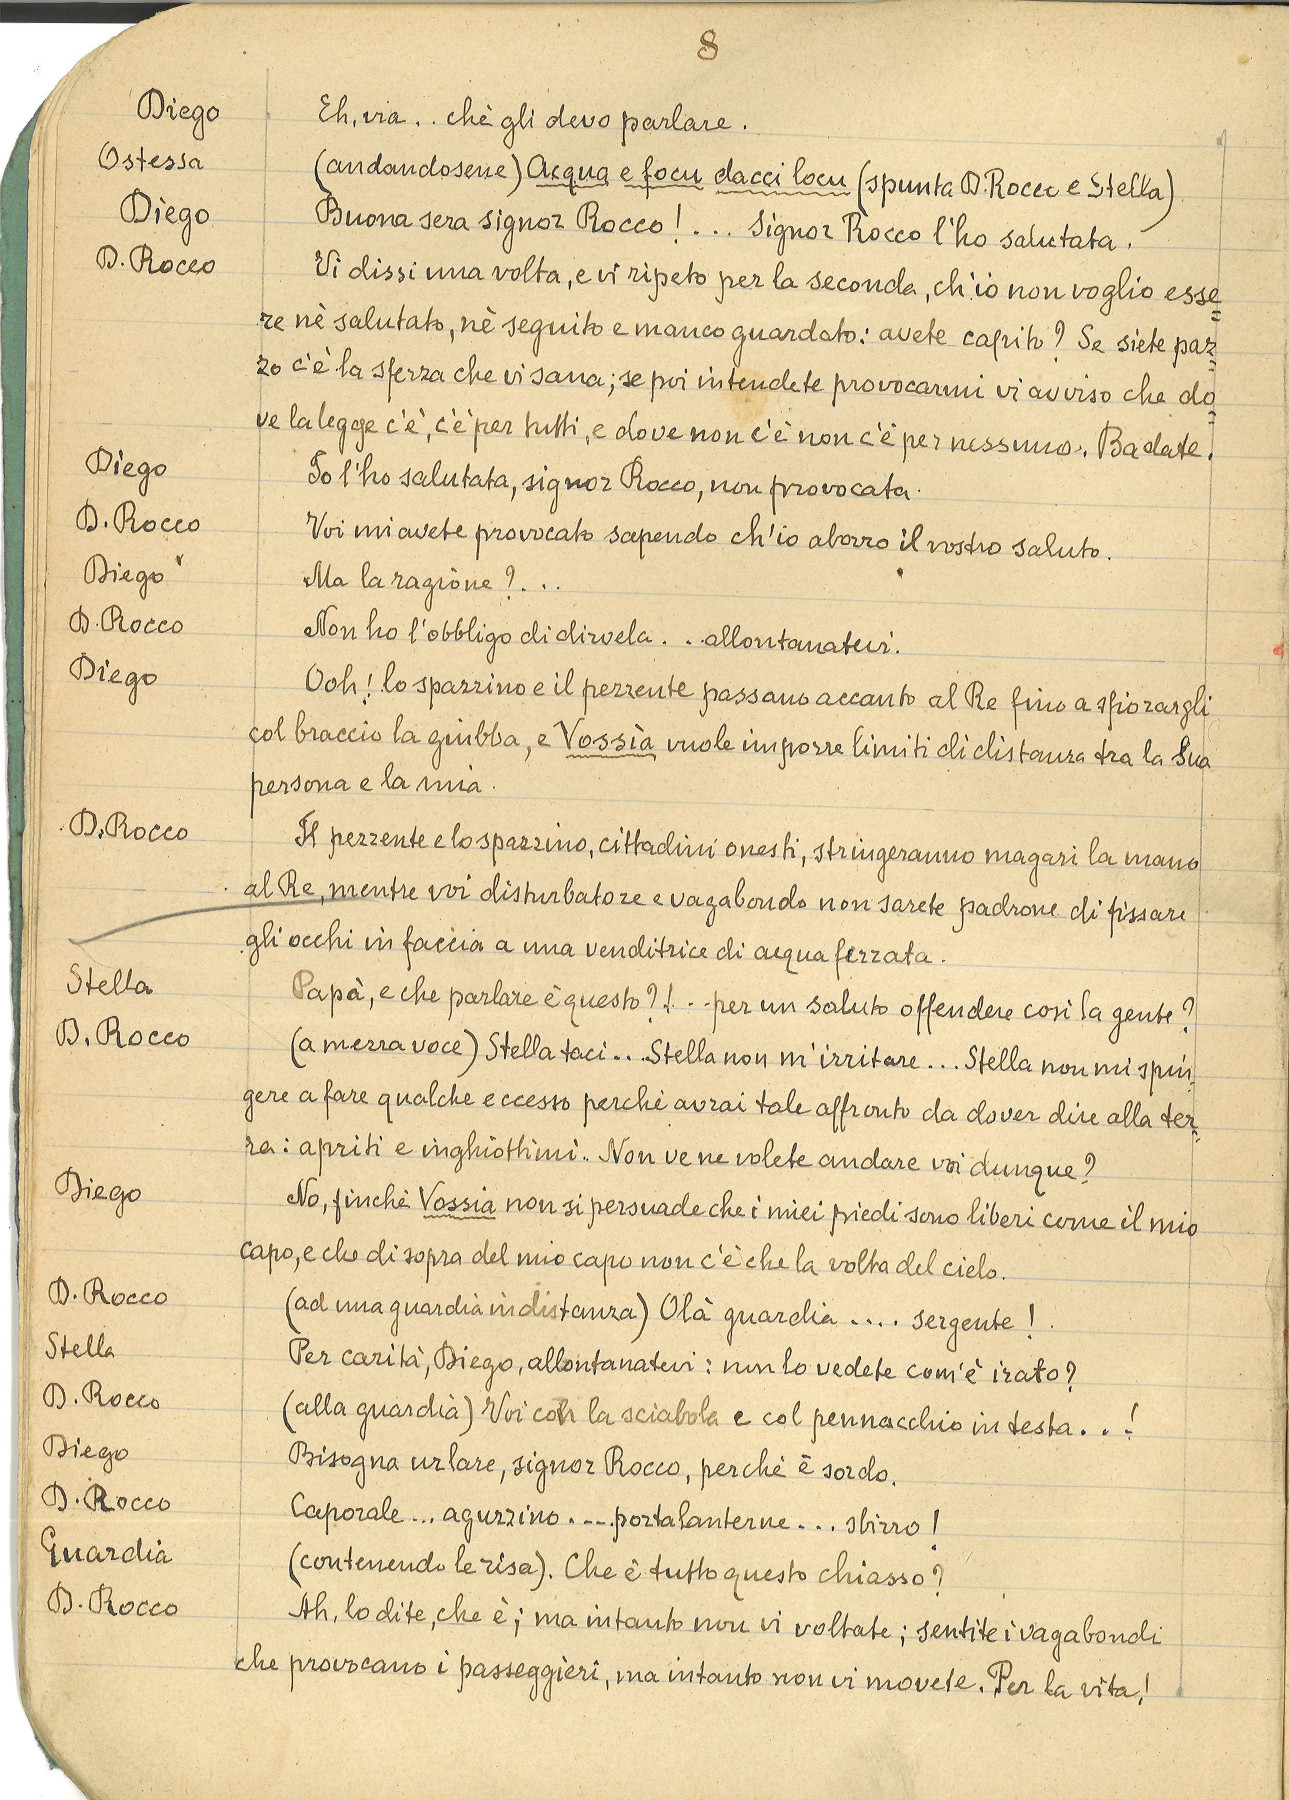 8
Diego Eh, via.. chè gli devo parlare.
Ostessa (andandosene) Acqua e focu dacci locu (spunta D. Rocco e Stella)
Diego Buona sera signor Rocco!... Signor Rocco l'ho salutata.
D. Rocco Vi dissi una volta, e vi ripeto per la seconda, ch'io non voglio esse=
re nè salutato, nè seguito e manco guardato: avete capito? Se siete paz=
zo c'è la sferza che vi sana; se poi intendete provocarmi vi avviso che do=
ve la legge c'è, c'è per tutti, e dove non c'è non c'è per nessuno. Badate.
Diego Io l'ho salutata, signor Rocco, non provocata.
D. Rocco Voi mi avete provocato sapendo ch'io aborro il vostro saluto.
Diego Ma la ragione?...
D. Rocco Non ho l'obbligo di dirvela... allontanatevi.
Diego Ooh! lo spazzino e il pezzente passano accanto al Re fino a sfiorargli
col braccio la giubba, e Vossìa vuole imporre limiti di distanza tra la Sua
persona e la mia.
D. Rocco Il pezzente e lo spazzino, cittadini onesti, stringeranno magari la mano
al Re, mentre voi disturbatore e vagabondo non sarete padrone di fissare
gli occhi in faccia a una venditrice di acqua ferrata.
Stella Papà, e che parlare è questo?!.. per un saluto offendere così la gente?
D. Rocco (a mezza voce) Stella taci... Stella non m'irritare... Stella non mi spin=
gere a fare qualche eccesso perchè avrai tale affronto da dover dire alla ter=
ra: apriti e inghiottimi. Non ve ne volete andare voi dunque?
Diego No, finchè Vossia non si persuade che i miei piedi sono liberi come il mio
capo, e che di sopra del mio capo non c'è che la volta del cielo.
D. Rocco (ad una guardia in distanza) Olà guardia.... sergente!
Stella Per carità, Diego, allontanatevi: non lo vedete com'è irato?
D. Rocco (alla guardia) Voi con la sciabola e col pennacchio in testa...!
Diego Bisogna urlare, signor Rocco, perchè è sordo.
D. Rocco Caporale... aguzzino.... portalanterne... sbirro!
Guardia (contenendo le risa). Che è tutto questo chiasso?
D. Rocco Ah, lo dite, che è; ma intanto non vi voltate; sentite i vagabondi
che provocano i passeggieri, ma intanto non vi movete. Per la vita!